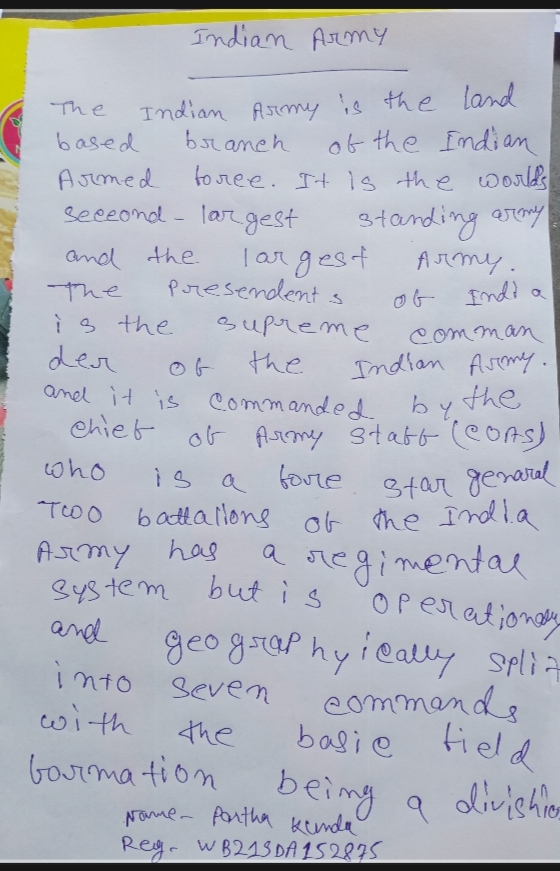 Indian Army
The Indian Army is the land
based branch of the Indian
Armed force. It is the worlds
seceond-largest standing army
and the largest Army.
The Presendents of India
is the supreme comman
der of the Indian Army.
and it is commanded by the
chief of Army staff (COAS)
who is a fore star genaral
Two battalions of the India
Army has a regimental
system but is operationaly
and geographyically split
into seven commands
with the basic field
formation being a divishion
Name- Partha Kunda
Reg- WB21SDA152875